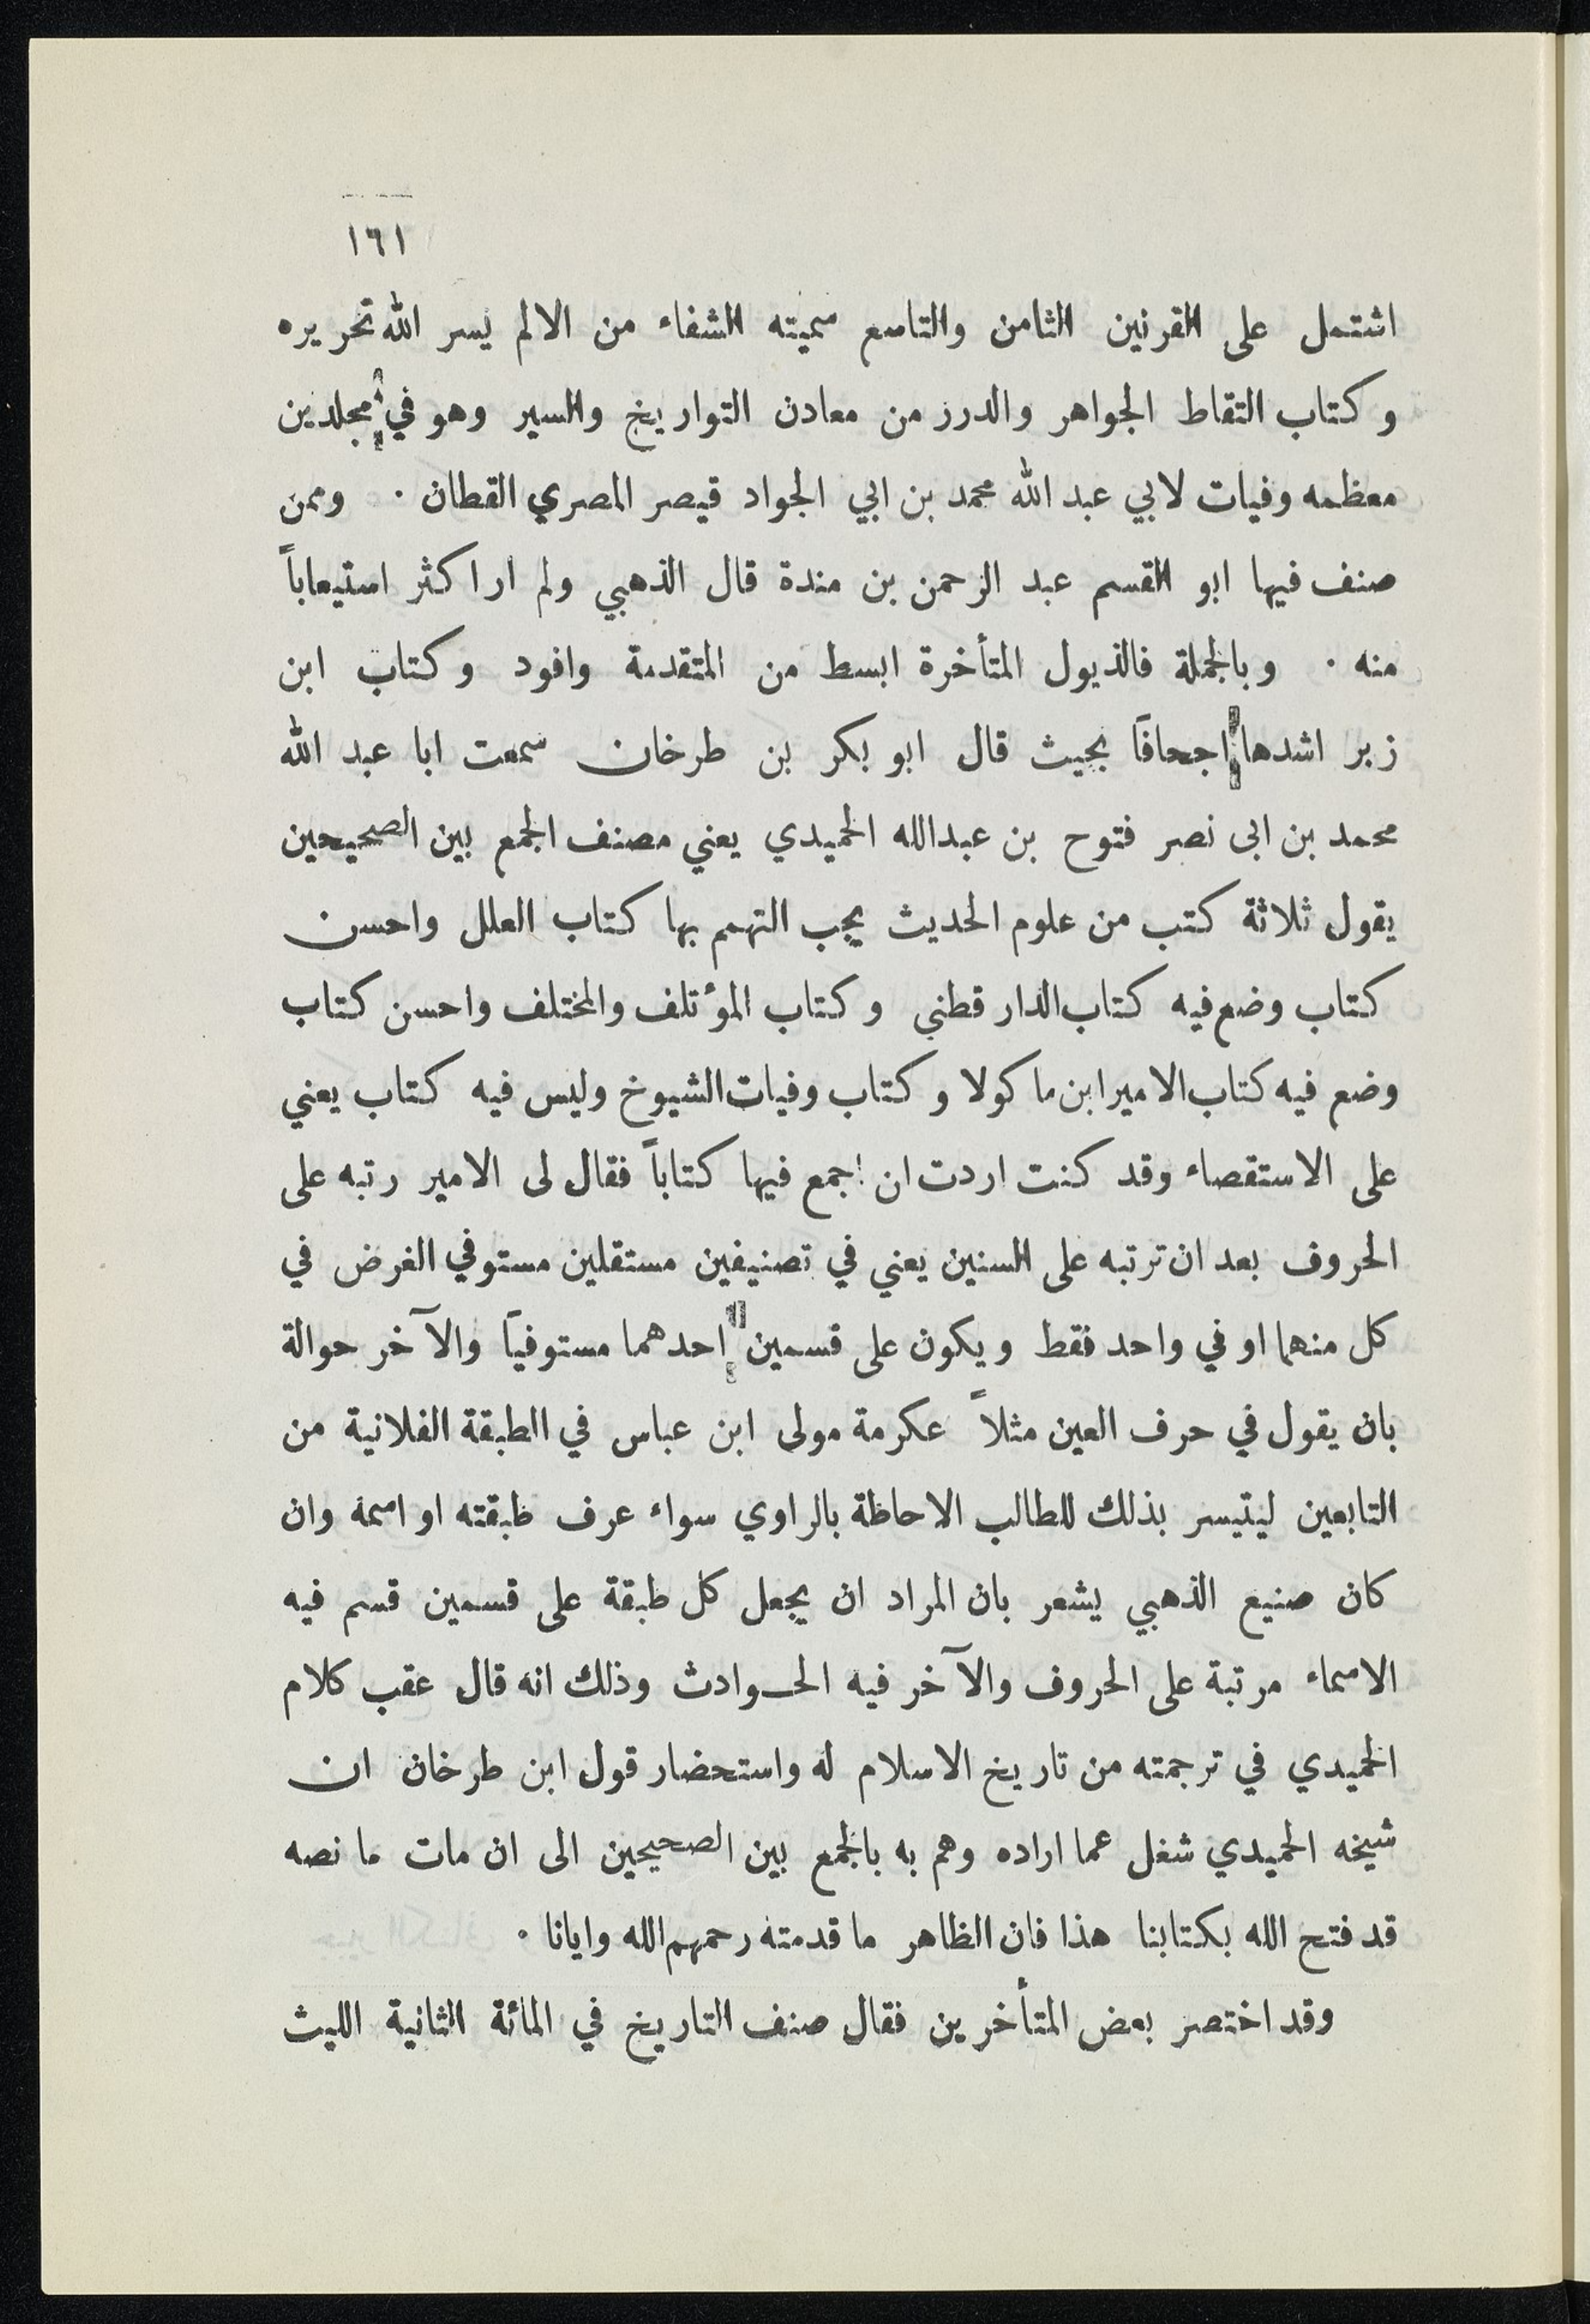 ١٦١
اشتمل على القرنين الثامن والتاسع سميته الشفاء من الالم يسر الله تحريره
وكتاب التقاط الجواهر والدرر من معادن التواريخ والسير وهو في مجلدين
معظمه وفيات لابي عبد الله محمد بن ابي الجواد قيصر المصري القطان · وممن
صنف فيها ابو القسم عبد الرحمن بن مندة قال الذهبي ولم ار اكثر استيعاباً
منه · وبالجملة فالذيول المتأخرة ابسط من المتقدمة وافود وكتاب ابن
زبر اشدها اجحافاً بحيث قال ابو بكر بن طرخان سمعت ابا عبد الله
محمد بن ابى نصر فتوح بن عبدالله الحميدي يعني مصنف الجمع بين الصحيحين
يقول ثلاثة كتب من علوم الحديث يجب التهمم بها كتاب العلل واحسن
كتاب وضع فيه كتاب الدار قطني وكتاب المؤتلف والمختلف واحسن كتاب
وضع فيه كتاب الامير ابن ماكولا وكتاب وفيات الشيوخ وليس فيه كتاب يعني
على الاستقصاء وقد كنت اردت ان اجمع فيها كتاباً فقال لى الامير رتبه على
الحروف بعد ان ترتبه على السنين يعني في تصنيفين مستقلين مستوفي الغرض في
كل منهما او في واحد فقط ويكون على قسمين احدهما مستوفياً والآخر حوالة
بان يقول في حرف العين مثلاً عكرمة مولى ابن عباس في الطبقة الفلانية من
التابعين ليتيسر بذلك للطالب الاحاطة بالراوي سواء عرف طبقته او اسمه وان
كان صنيع الذهبي يشعر بان المراد ان يجعل كل طبقة على قسمين قسم فيه
الاسماء مرتبة على الحروف والآخر فيه الحـوادث وذلك انه قال عقب كلام
الحميدي في ترجمته من تاريخ الاسلام له واستحضار قول ابن طرخان ان
شيخه الحميدي شغل عما اراده وهم به بالجمع بين الصحيحين الى ان مات ما نصه
قد فتح الله بكتابنا هذا فان الظاهر ما قدمته رحمهم الله وايانا ·
وقد اختصر بعض المتأخرين فقال صنف التاريخ في المائة الثانية الليث